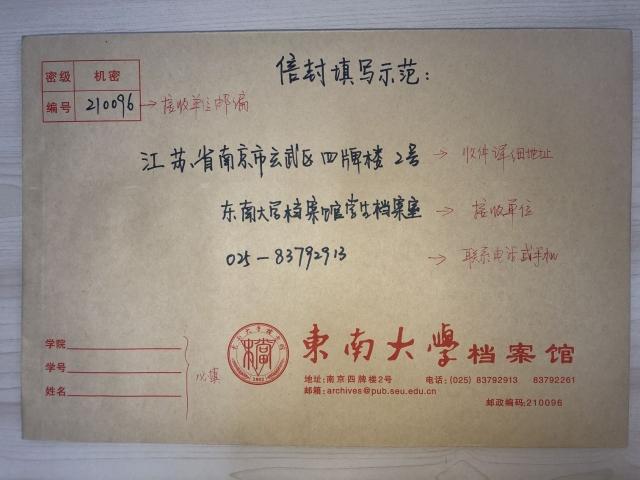 信封填写示范：
密级 机密
编号 210096 → 接收单位邮编
江苏省南京市玄武区四牌楼2号 → 收件详细地址
东南大学档案馆学生档案室 → 接收单位
025-83792913 → 联系电话或手机
学院
学号
姓名
必填
東南大學档案馆
地址:南京四牌楼2号 电话:(025) 83792913 83792261
邮箱:archives@pub.seu.edu.cn
邮政编码:210096